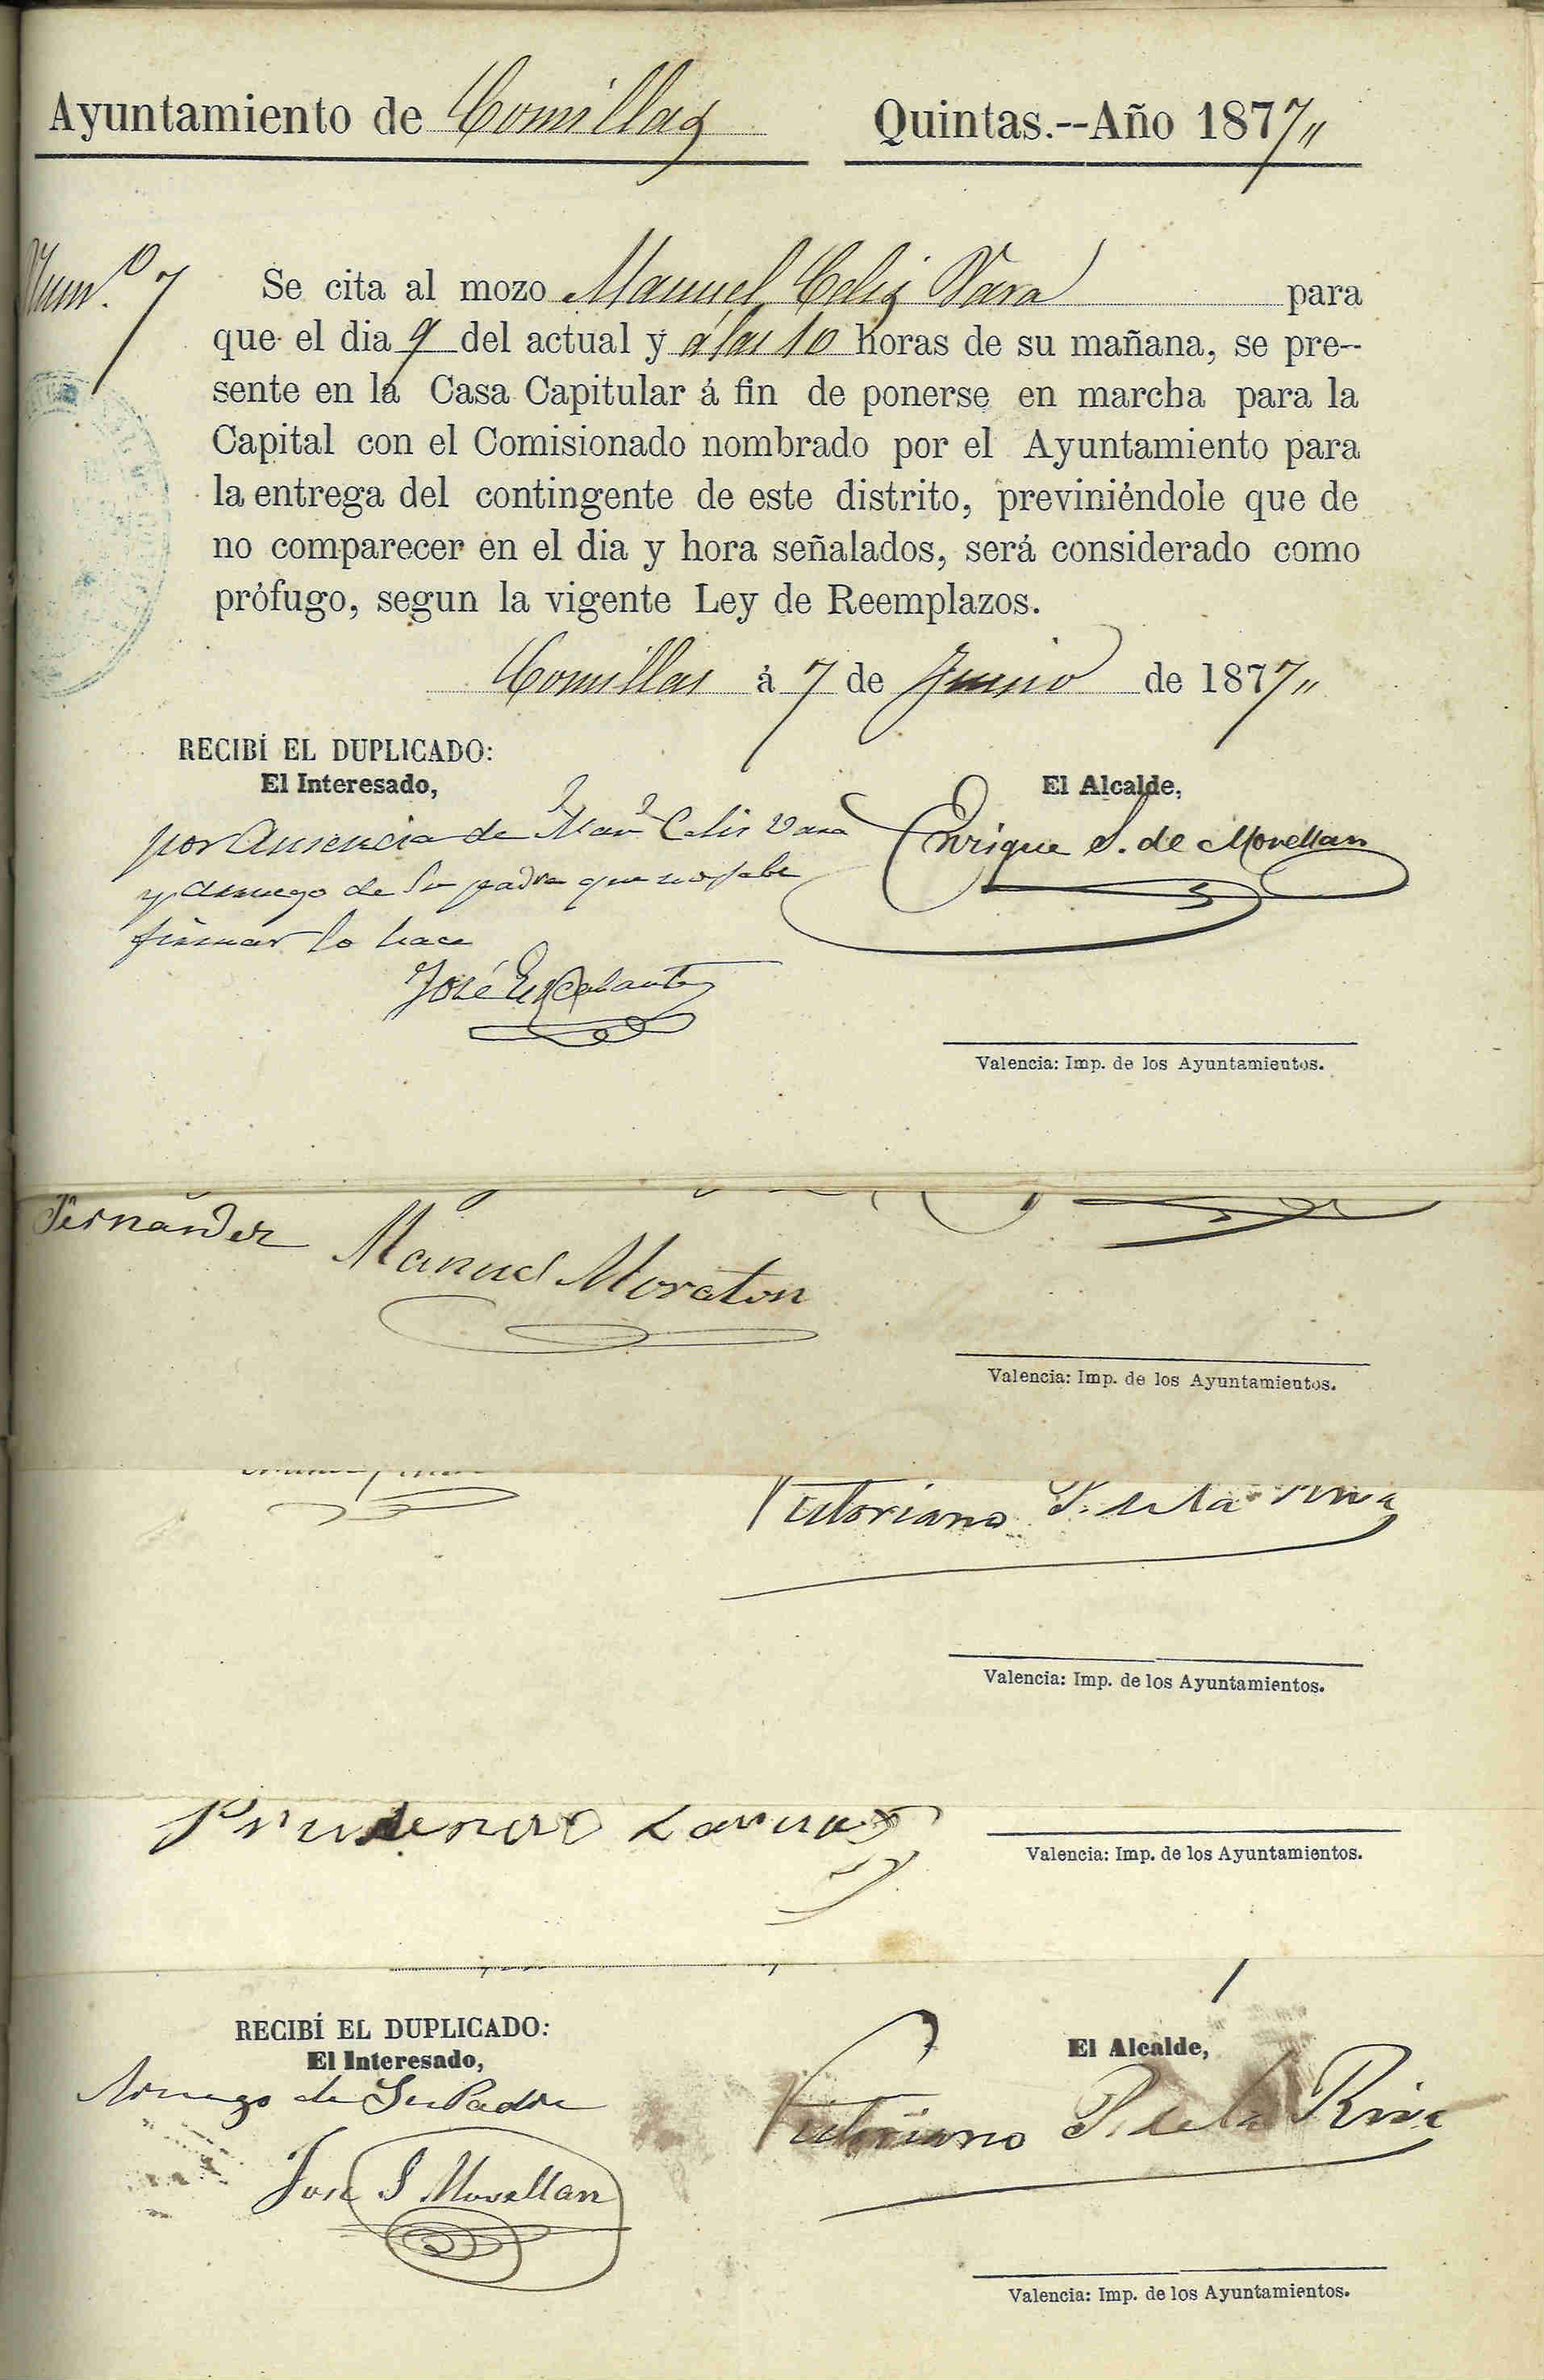 Ayuntamiento de Comillas Quintas.--Año 1877
Num.º 7 Se cita al mozo Manuel Celis Vara para
que el dia 9 del actual y á las 10 horas de su mañana, se pre--
sente en la Casa Capitular á fin de ponerse en marcha para la
Capital con el Comisionado nombrado por el Ayuntamiento para
la entrega del contingente de este distrito, previniéndole que de
no comparecer en el dia y hora señalados, será considerado como
prófugo, segun la vigente Ley de Reemplazos.
Comillas á 7 de Junio de 1877
RECIBÍ EL DUPLICADO:
El Interesado,
El Alcalde,
por Ausencia de Man.l Celis Vara
y a ruego de Su padre que no sabe
firmar lo hace
José Escalante
Enrique S. de Movellan
Valencia: Imp. de los Ayuntamientos.
Fernández Manuel Moraton
Valencia: Imp. de los Ayuntamientos.
Victoriano P. de la Riva
Valencia: Imp. de los Ayuntamientos.
Prudencio
Valencia: Imp. de los Ayuntamientos.
RECIBÍ EL DUPLICADO:
El Interesado,
El Alcalde,
A ruego de Su Padre
José S Movellan
Victoriano P. de la Riva
Valencia: Imp. de los Ayuntamientos.